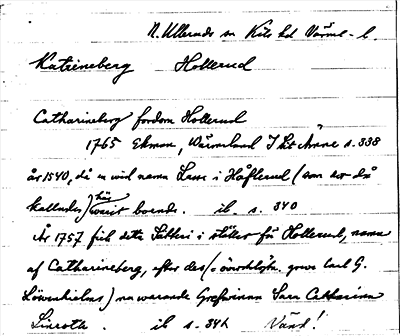 N. Ulleruds sn Kils hd Värml. l.
Katrineberg Hollerud
Catharineberg fordom Hollerud
1765 Ekman, Wärmland I kt Änne s. 338
år 1540, då en vid namn Lasse i Håflerud (som det då
kallades) här warit boende. ib. s. 340
År 1757 fick detta Säteri i stället för Hollerud, namn
af Catharineberg, efter des (öfverhöga. grefve Carl G.
Löwenhielms) nu warande Grefwinna Sara Catharina
Linroth. ib s. 341 Vänd!